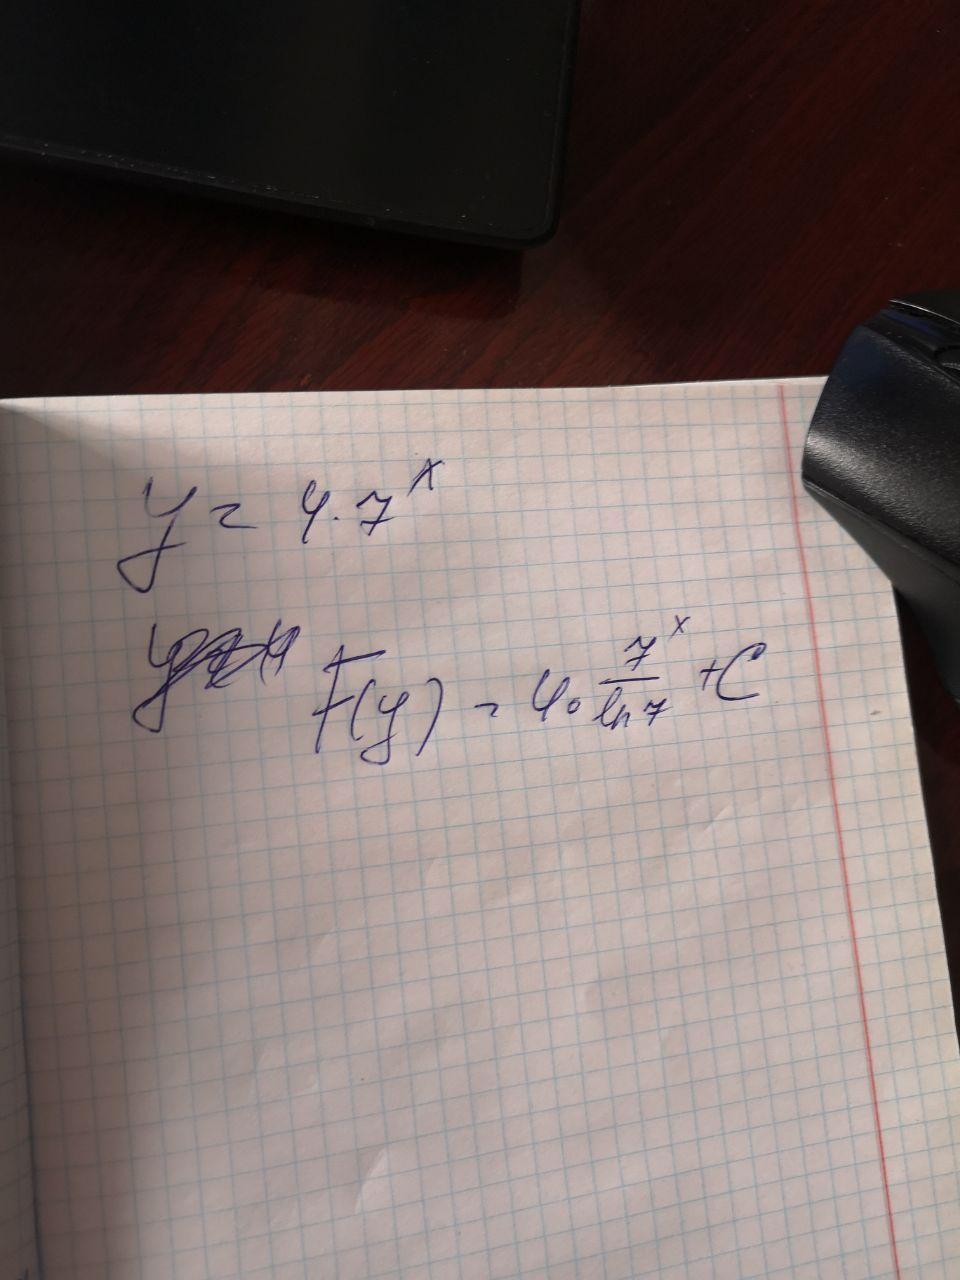 y = 4·7^x
F(y) = 4·7^x/ln 7 + C